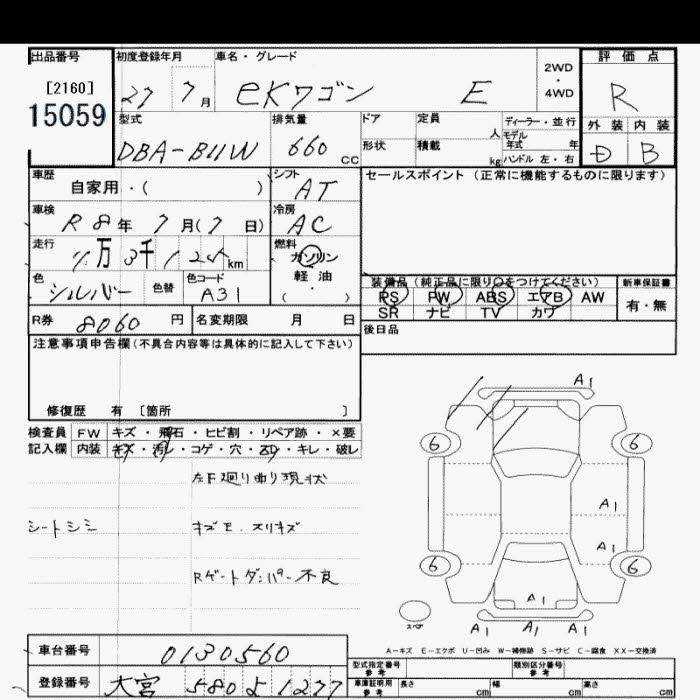 出品番号 初度登録年月 車名・グレード 評価点
[2160]
15059
27 7月 eKワゴン E 2WD・4WD R
型式 排気量 ドア 定員 人 ディーラー・並行 外装 内装
DBA-B11W 660cc 形状 積載 kg モデル年式 年 ハンドル 左・右 D B
車歴 シフト セールスポイント (正常に機能するものに限ります)
自家用・( ) AT
車検 冷房
R8年7月(7日) AC
走行 燃料
11万3千12 km ガソリン
軽油
( ・ )
色 色替 色コード
シルバー A31
装備品 (純正品に限り○をつけてください) 新車保証書
PS PW ABS エアB AW 有・無
SR ナビ TV カワ
R券 8060円 名変期限 月 日 後日品
注意事項申告欄(不具合内容等は具体的に記入して下さい)
修復歴 有 〔箇所 〕
検査員 FW キズ・飛石・ヒビ割・リペア跡・×要
記入欄 内装 キズ・汚レ・コゲ・穴・キレ・破レ
左F廻り曲り現状
シートシミ キズE.スリキズ
Rゲートダンパー不良
A1
6 6
A1
A1
6 6
A1
スペア
A1 A1
A-キズ E-エクボ U-凹み W-補修跡 S-サビ C-腐食 XX-交換済
車台番号 0130560
登録番号 大宮 580 よ 1277
型式指定番号 参考 類別区分番号 参考
車庫証明用 参考 長さ cm 幅 cm 高さ cm